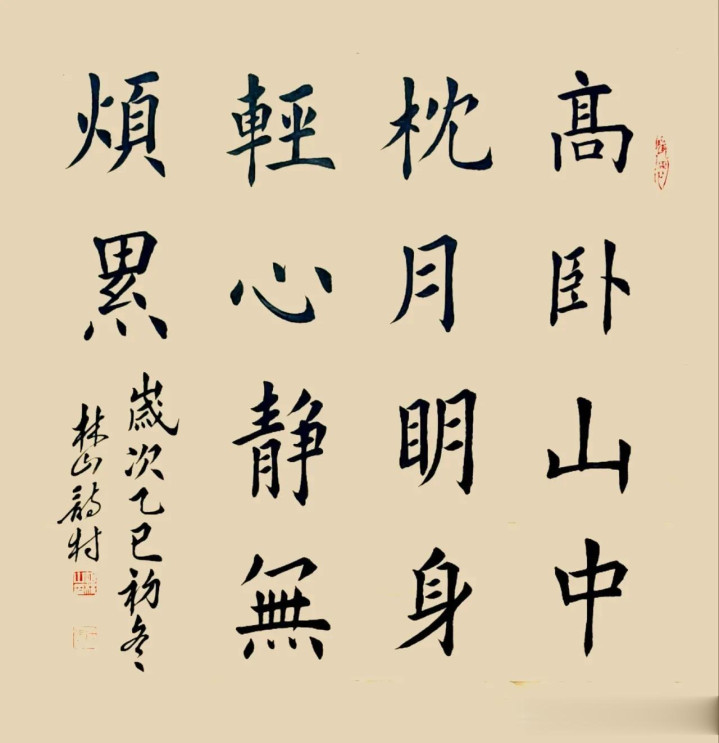 髙卧山中
枕月眀身
輕心静無
煩累
歲次乙巳初冬
林山詩村